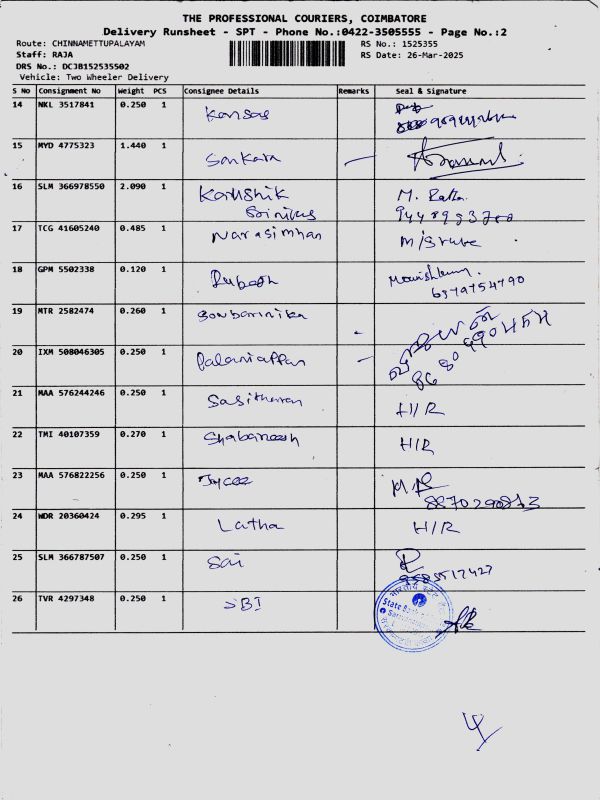 THE PROFESSIONAL COURIERS, COIMBATORE
Delivery Runsheet - SPT - Phone No.:0422-3505555 - Page No.:2
Route: CHINNAMETTUPALAYAM
Staff: RAJA
DRS No.: DCJB152535502
Vehicle: Two Wheeler Delivery
RS No.: 1525355
RS Date: 26-Mar-2025
S No Consignment No Weight PCS Consignee Details Remarks Seal & Signature
14 NKL 3517841 0.250 1 Kansas
15 MYD 4775323 1.440 1 Sankara
16 SLM 366978550 2.090 1 Karushik M.
Srinivas
17 TCG 41605240 0.485 1 Narasimhan
18 GPM 5502338 0.120 1
6379754790
19 MTR 2582474 0.260 1 Gowbarnika
20 IXM 508046305 0.250 1 Palaniappan
21 MAA 576244246 0.250 1 Sasitharan H/R
22 TMI 40107359 0.270 1 Shabareesh H/R
23 MAA 576822256 0.250 1 Jycee
24 WDR 20360424 0.295 1 Latha H/R
25 SLM 366787507 0.250 1 Sai
26 TVR 4297348 0.250 1 SBI
State Bank